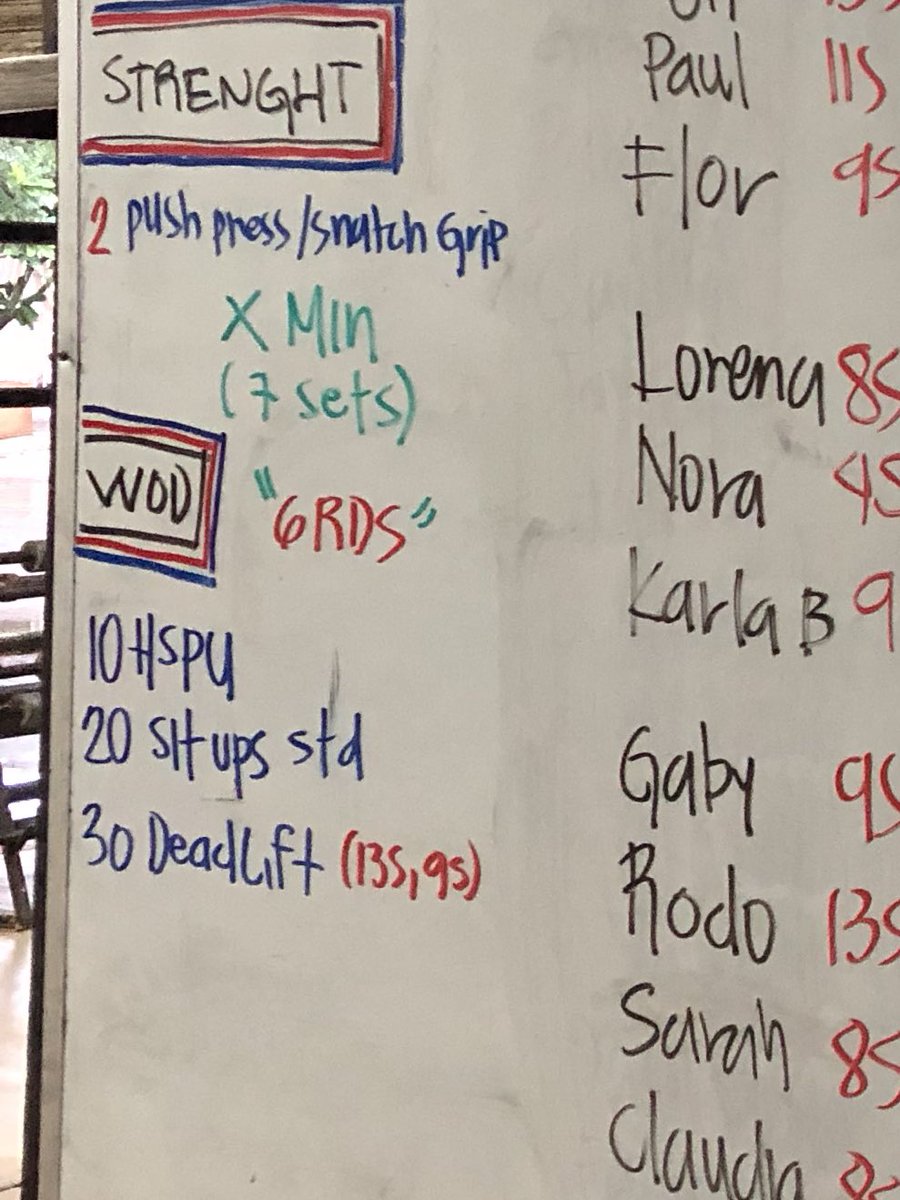 STRENGHT
2 push press/snatch Grip
X Min
(7 sets)
WOD "6RDS"
10 HSPU
20 Sit ups std
30 DeadLift (135,95)
Paul 115
Flor 95
Lorena 85
Nora 45
Karla B 9
Gaby 95
Rodo 135
Sarah 85
Claudia